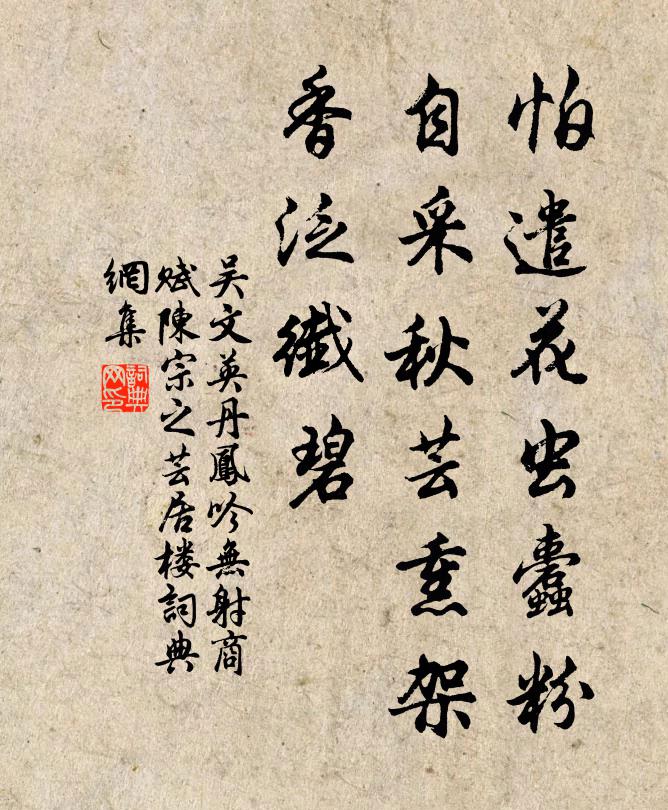 怕遣花虫蠹粉
自采秋芸熏架
香泛纖碧
吴文英丹鳳吟無射商
赋陳宗之芸居楼詞典
網集
詞典
网印